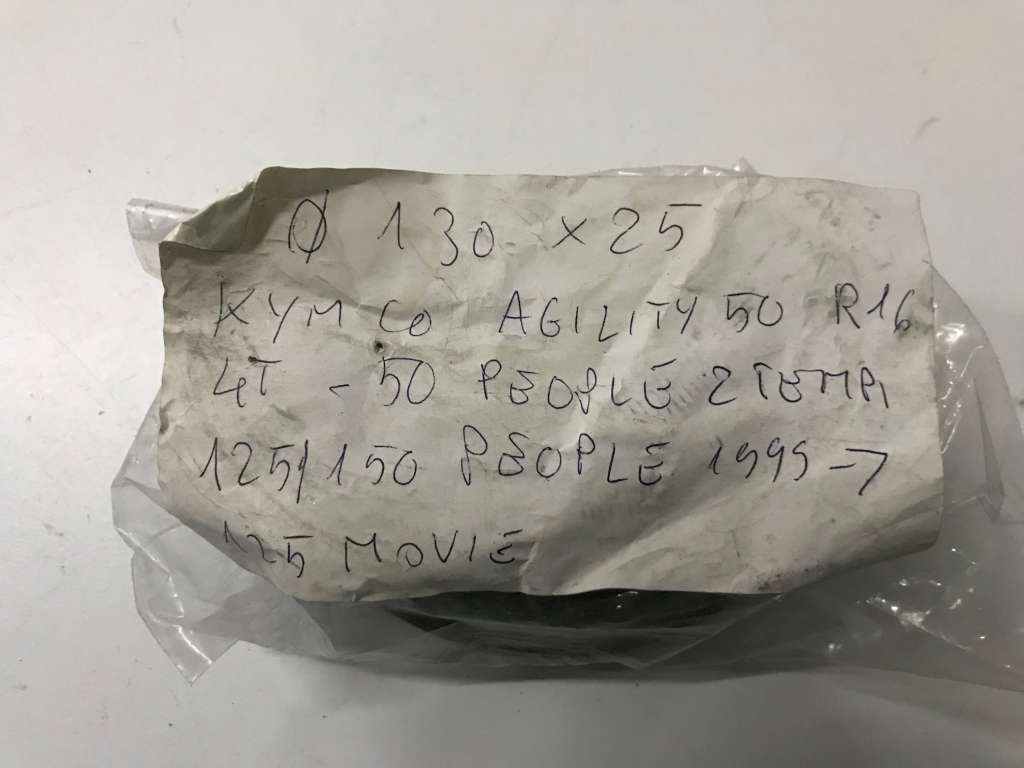 Ø 130 x 25
KYMCO AGILITY 50 R16
4T - 50 PEOPLE 2 TEMPI
125/150 PEOPLE 1999 ->
125 MOVIE